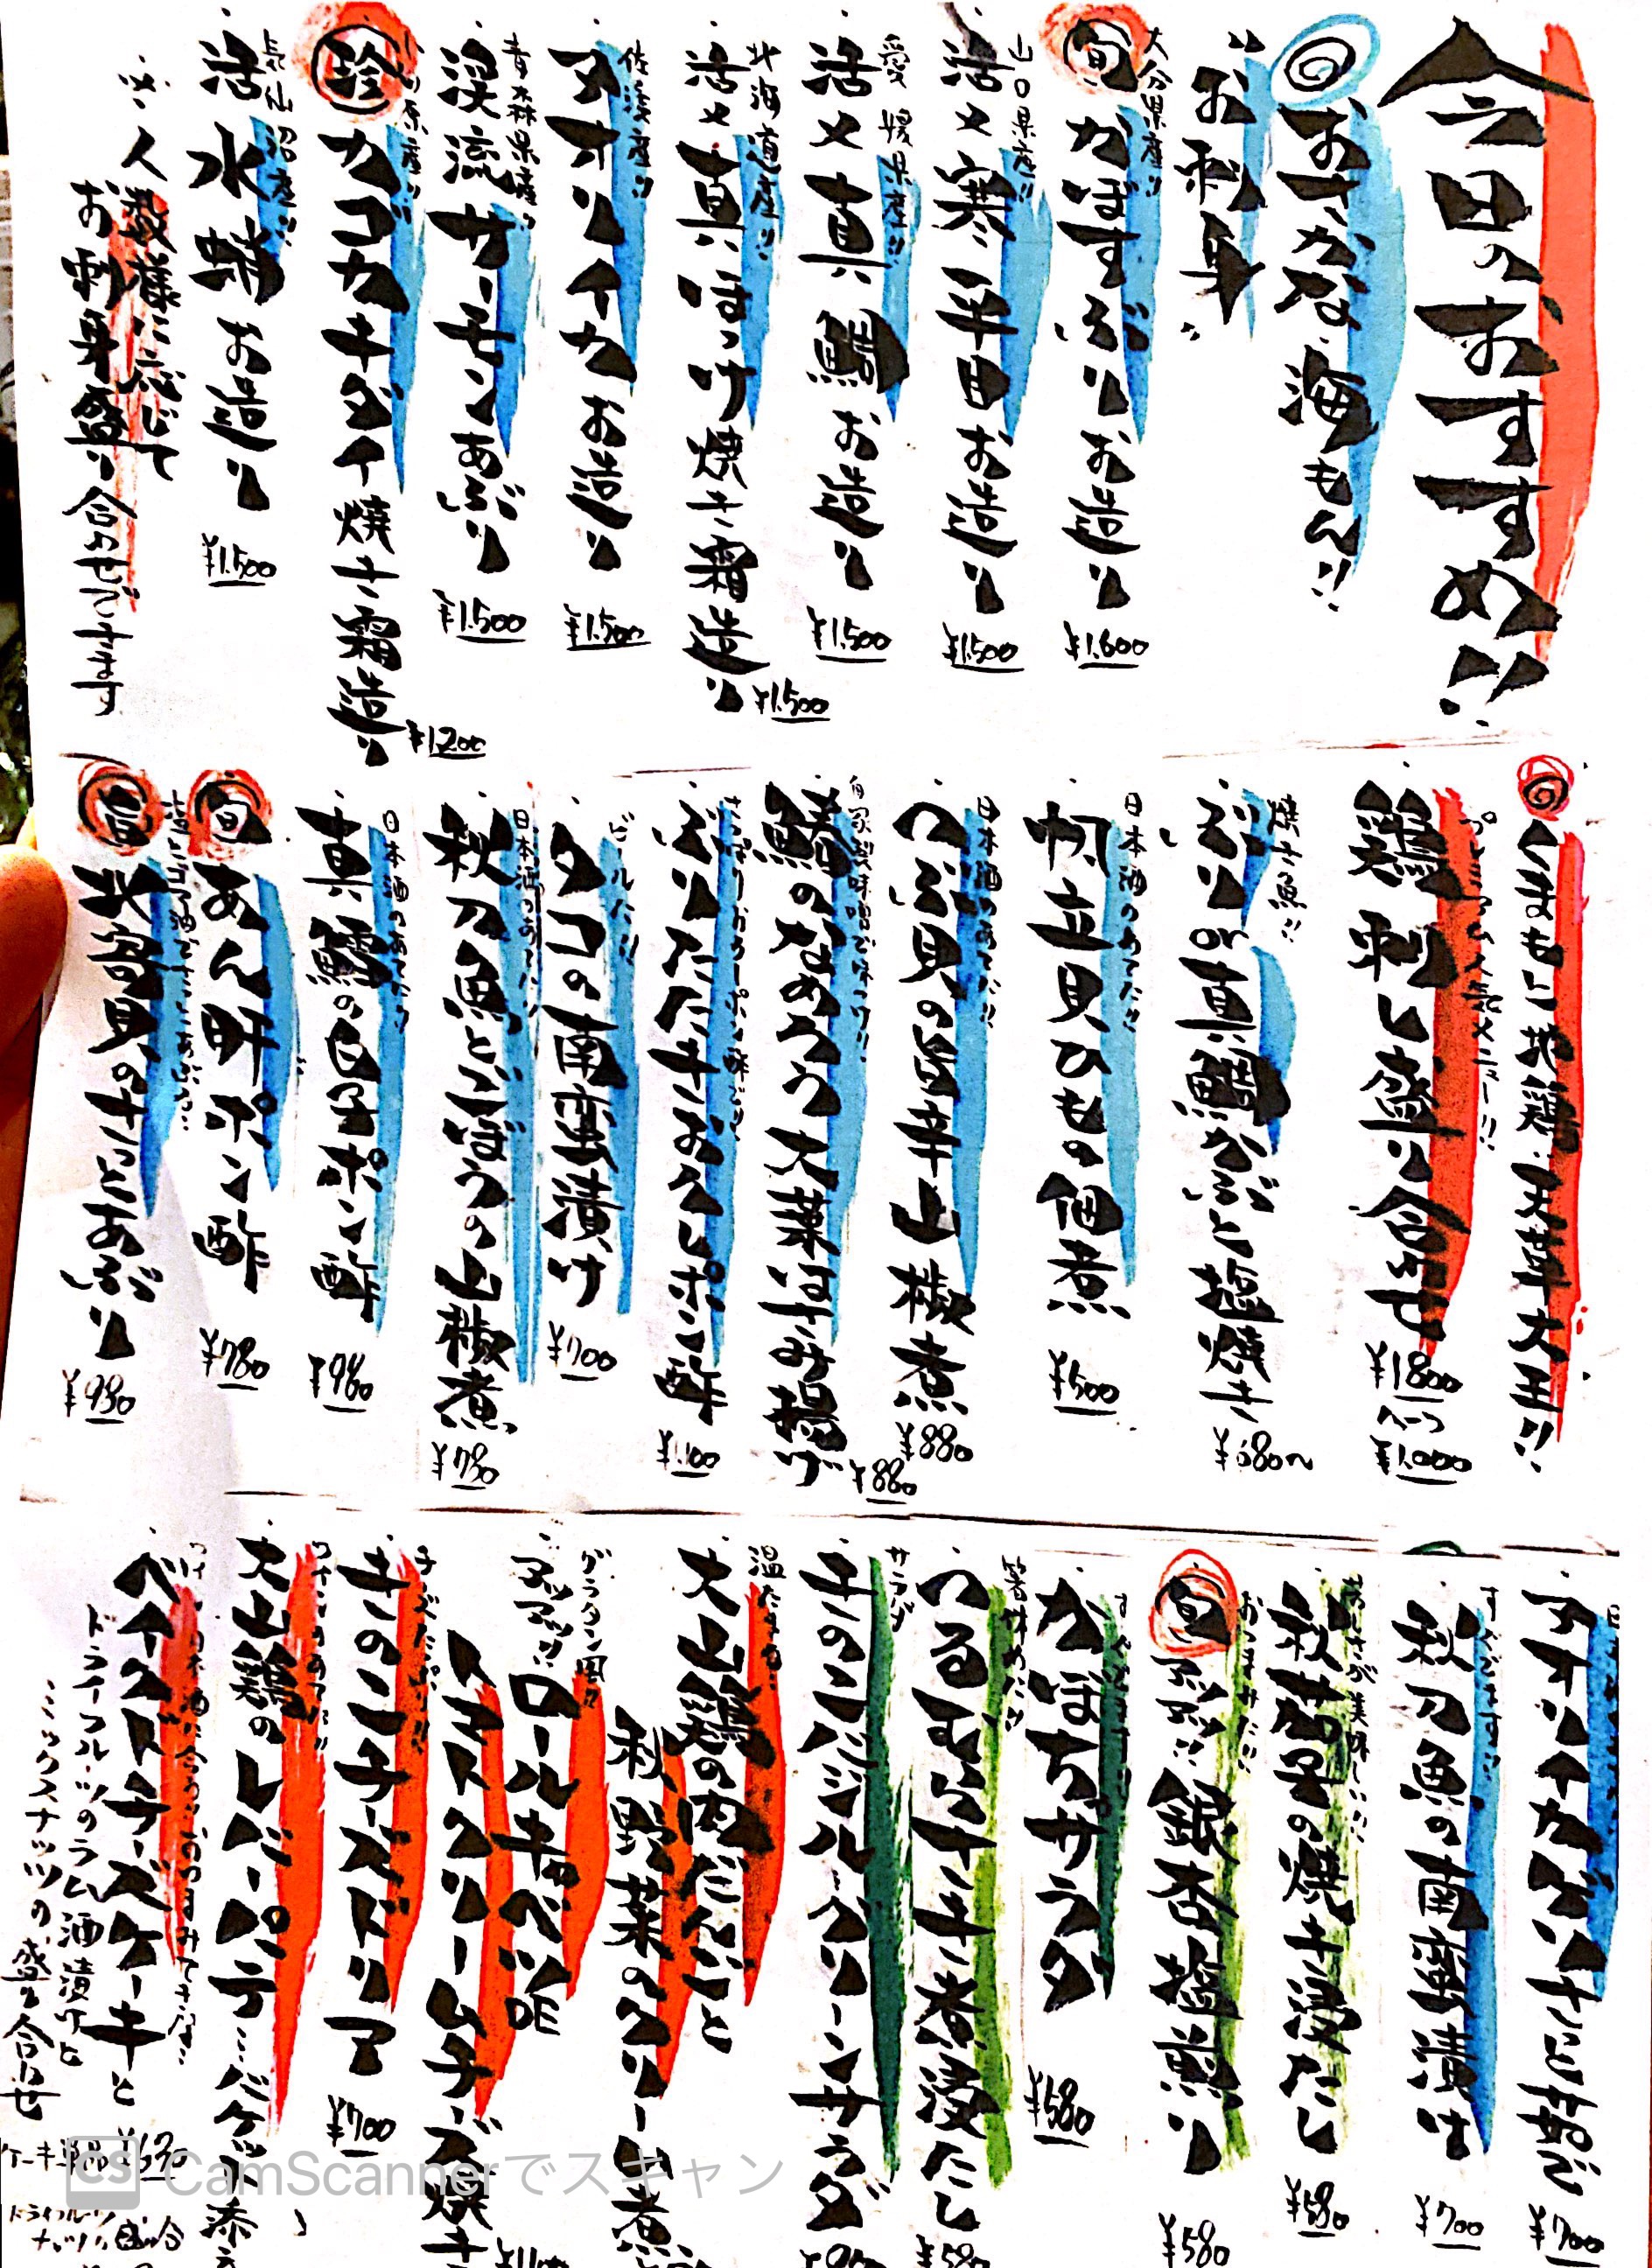 今日のおすすめ!!
◎おさかな、海もん!!
"お刺身"
大分県産!!
旬 かぼすぶり お造り ¥1.600
山口県産!!
活〆 寒平目 お造り ¥1.500
愛媛県産!!
活〆 真鯛 お造り ¥1.500
北海道産!!
活〆 真ほっけ 焼き霜造り ¥1.500
佐渡産!!
アオリイカ お造り ¥1.500
青森県産!!
渓流サーモン あぶり ¥1.500
原産!!
珍 カゴカキダイ 焼き霜造り ¥1200
気仙沼産!!
活 水蛸 お造り ¥1.500
※人数様に応じて
お刺身盛り合わせできます
◎くまもと地鶏 天草大王!!
プレミアムな人気メニュー!!
鶏刺し盛り合わせ ¥1800 ハーフ ¥1.000
焼き魚!!
ぶり or 真鯛かぶと塩焼き ¥680〜
日本酒のあてだ!!
帆立貝ひもの佃煮 ¥500
日本酒のあてだ!!
つぶ貝の旨辛山椒煮 ¥880
自家製味噌で味つけ!!
鯵のなめろう大葉はさみ揚げ ¥880
さっぱりおろしポン酢で!!
ぶりたたきおろしポン酢 ¥1.100
ビールだ!!
タコの南蛮漬け ¥700
日本酒のあてだ!!
秋刀魚とごぼうの山椒煮 ¥780
日本酒のあてだ!!
真鱈の白子ポン酢 ¥980
旬 あん肝ポン酢 ¥780
北寄貝のさっとあぶり ¥980
アオリイカゲソさっと揚げ ¥700
秋刀魚の南蛮漬け ¥700
秋茄子の焼き浸し ¥580
旬 銀杏塩煎り ¥580
かぼちゃサラダ ¥580
つるむらさき煮浸し ¥580
サラダ
きのこシーザーサラダ
温たまる!!
大山鶏の肉だんごと
秋野菜のクリーム煮
グラタン風!!
アツアツ!! ロールキャベツ
トマトクリームチーズ焼き
チーズたっぷり!!
きのこチーズドリア ¥700
ワインのあてだ!!
大山鶏のレバーパテ…バゲット添え
ベイクドチーズケーキと
ドライフルーツのラム酒漬けと
ミックスナッツの盛り合わせ
ケーキ単品 ¥530
CS CamScannerでスキャン